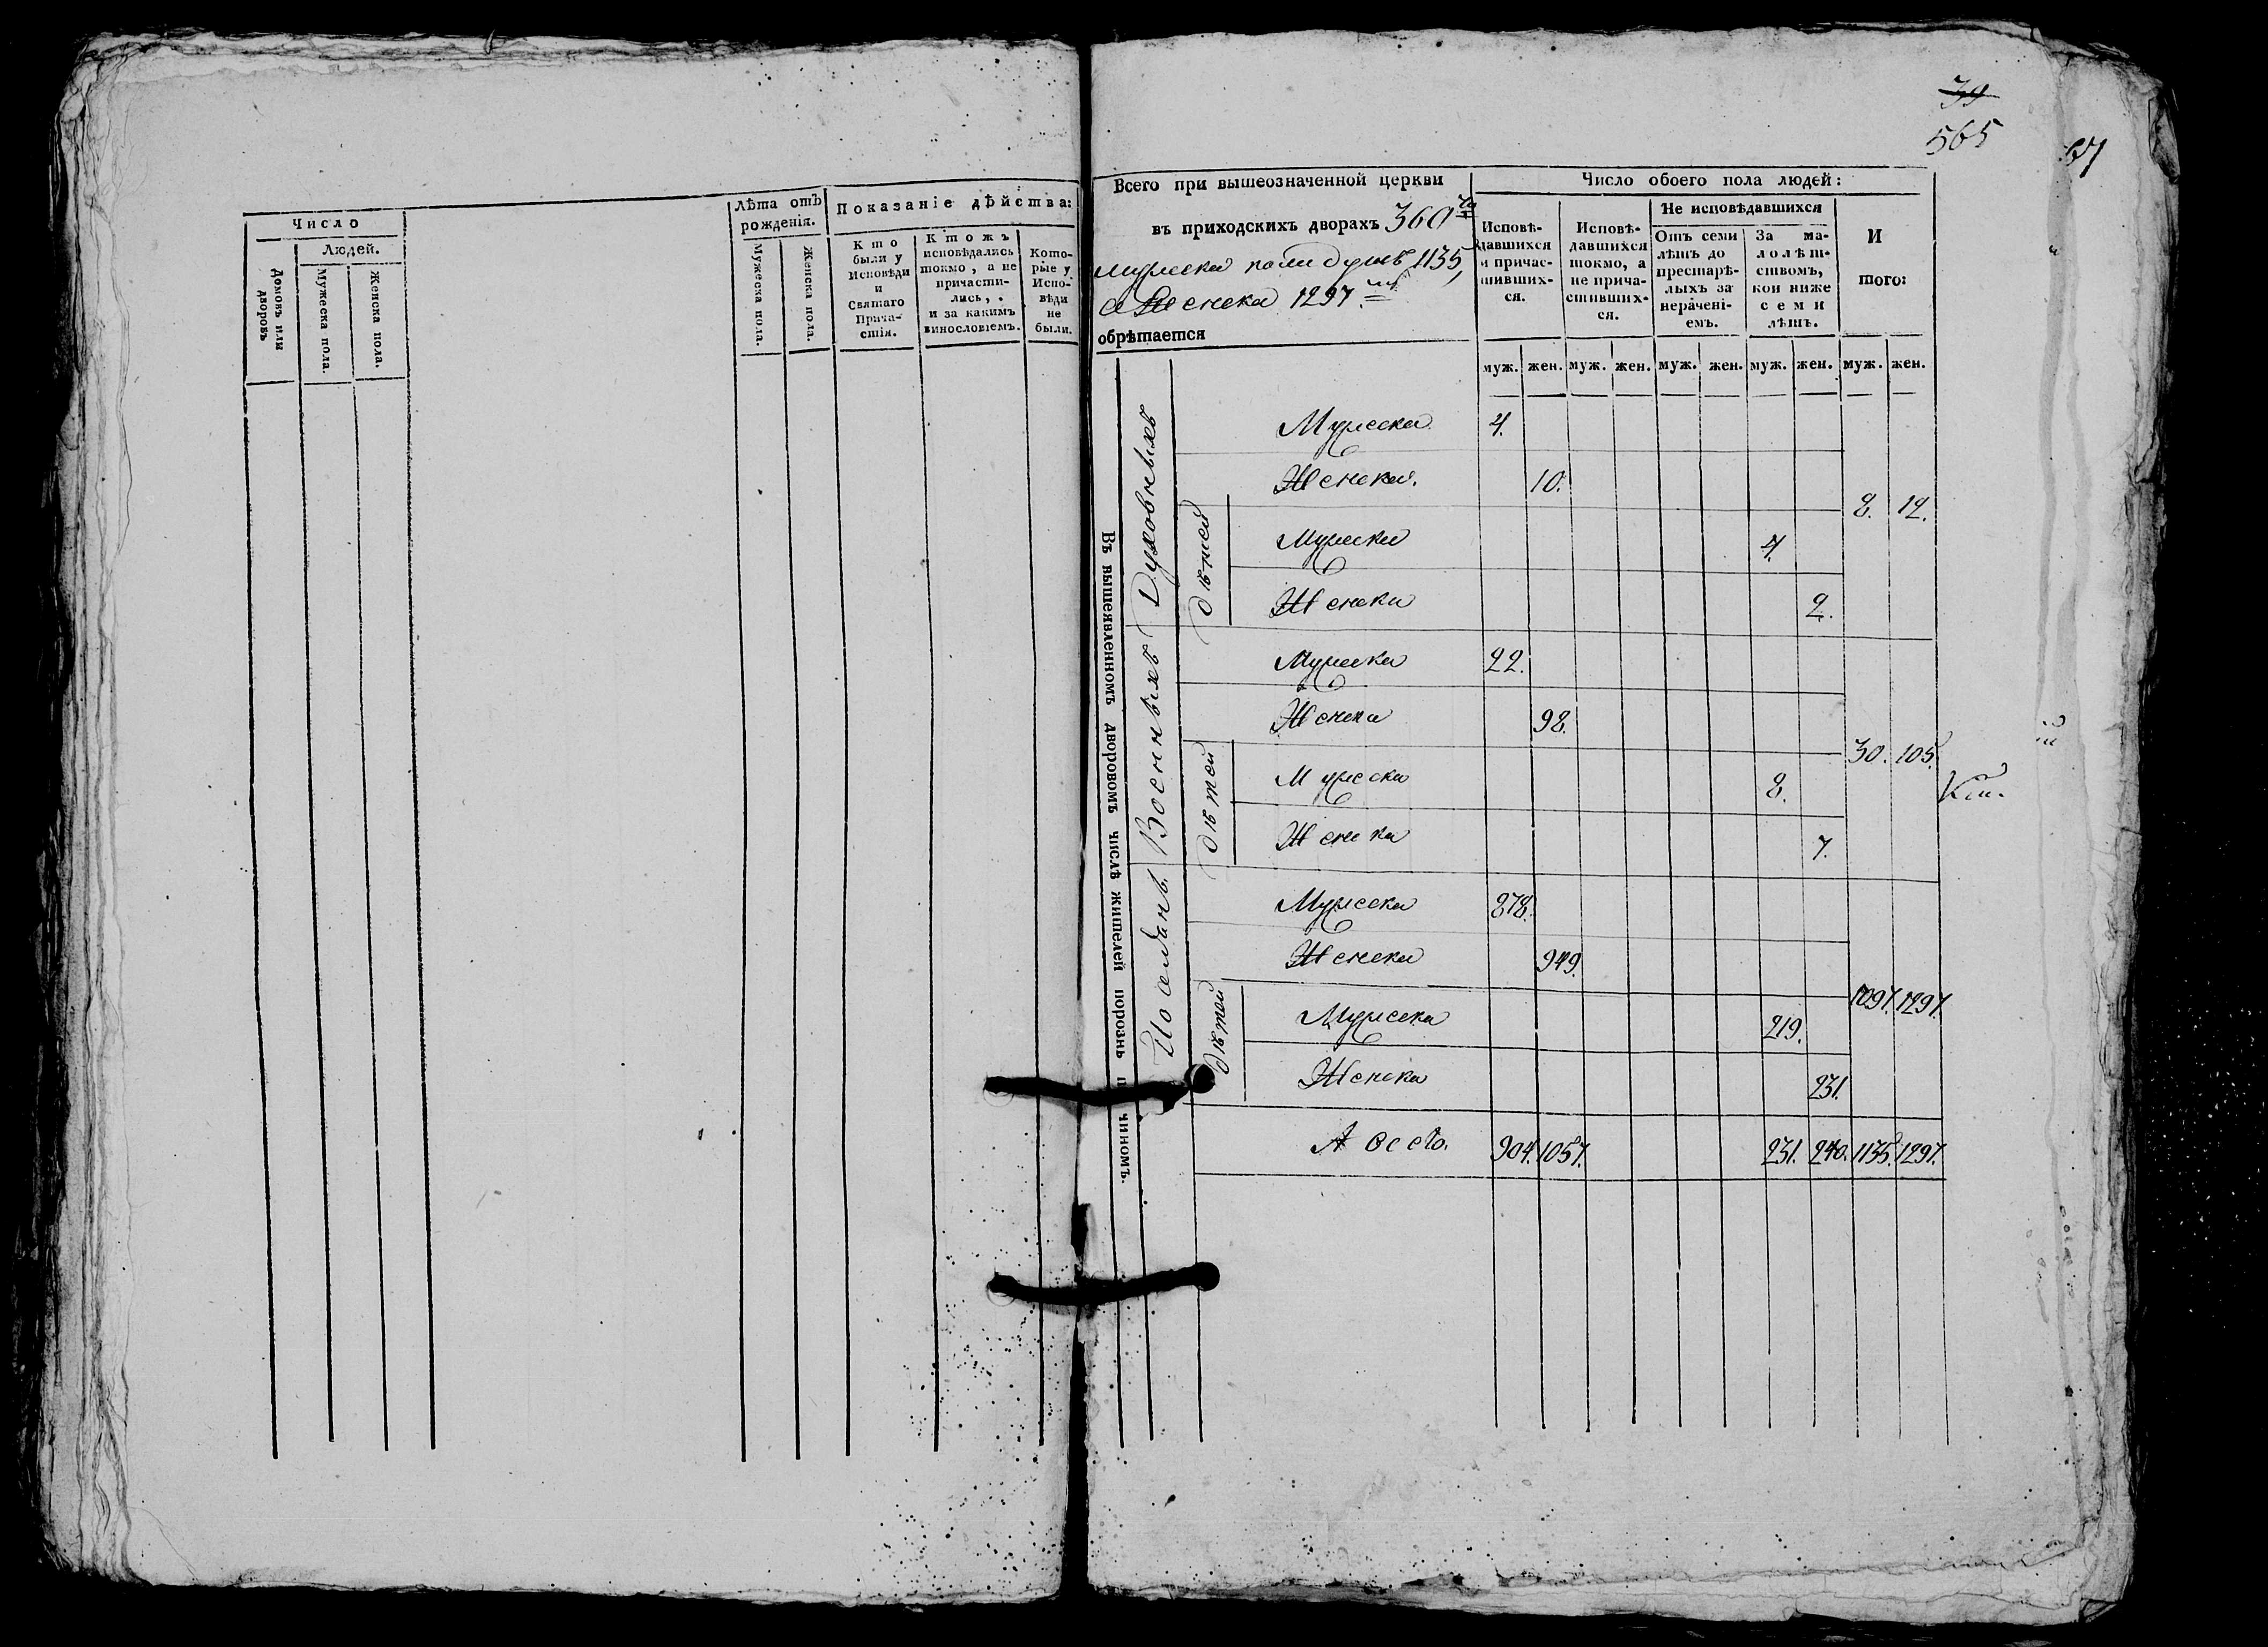 Число
Людей.
Домовъ или дворовъ
Мужеска пола.
Женска пола.
Лѣта отъ рожденія.
Мужеска пола.
Женска пола.
Показаніе дѣйства:
Кто были у Исповѣди и Святаго Прича-стія.
Ктожъ исповѣдались токмо, а не причасти-лись, и за какимъ винословіемъ.
Кото-рые у Испо-вѣди не были.
39
565
Всего при вышеозначенной церкви
въ приходскихъ дворахъ 360
мужеска пола душъ 1135,
а женска 1297
обрѣтается
Число обоего пола людей:
Исповѣ-давшихся и причас-тивших-ся.
Исповѣ-давшихся токмо, а не прича-стивших-ся.
Не исповѣдавшихся
Отъ семи лѣтъ до престарѣ-лыхъ за нераченi-емъ.
За ма-лолѣт-ствомъ, кои ниже семи лѣтъ.
И того:
муж. жен. муж. жен. муж. жен. муж. жен. муж. жен.
Въ вышеявленномъ дворовомъ числѣ жителей порознь чиномъ.
Духовныхъ
Мужеска 4.
Женска. 10.
8. 12.
дѣтей
Мужеска 4.
Женска 2.
Военныхъ
Мужеска 22.
Женска 98.
30. 105.
дѣтей
Мужеска 8.
Женска 7.
Поселянъ.
Мужеска 878.
Женска 949.
1097. 1297.
дѣтей
Мужеска 219.
Женска 231.
А всего. 904. 1057. 231. 240. 1135. 1297.